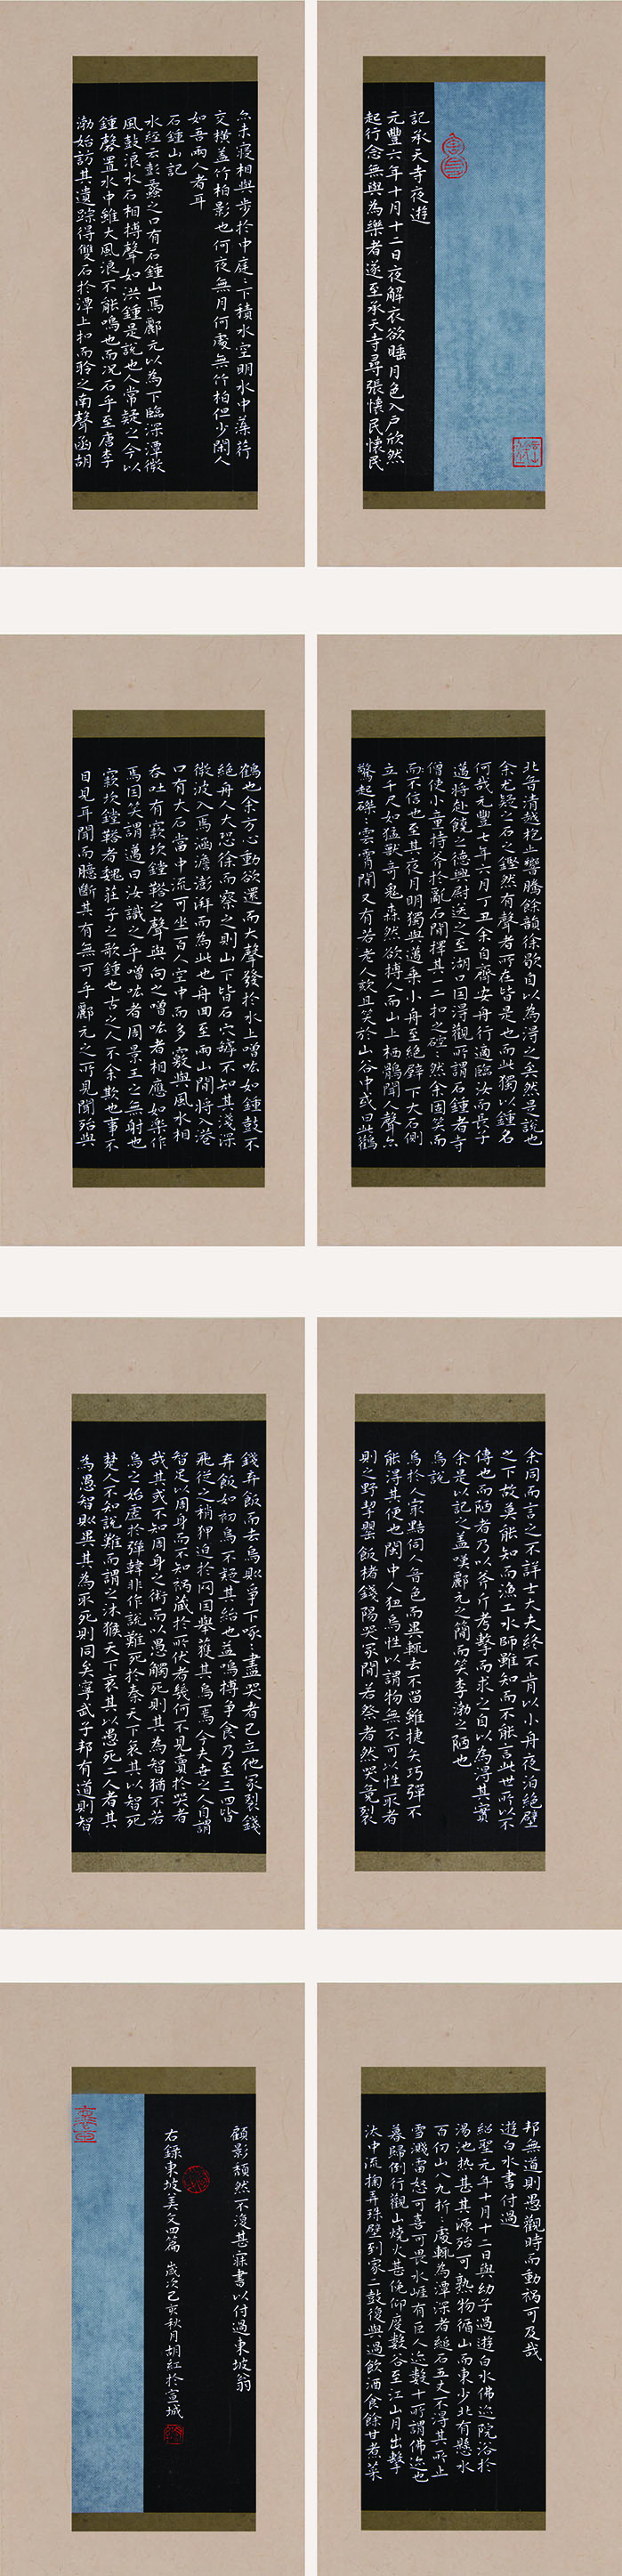 記承天寺夜遊
元豐六年十月十二日夜解衣欲睡月色入戶欣然
起行念無與為樂者遂至承天寺尋張懷民懷民
亦未寢相與步於中庭:下積水空明水中藻荇
交橫蓋竹柏影也何夜無月何處無竹柏但少閑人
如吾兩人者耳
石鐘山記
水經云彭蠡之口有石鐘山焉酈元以為下臨深潭微
風鼓浪水石相搏聲如洪鐘是說也人常疑之今以
鐘磬置水中雖大風浪不能鳴也而況石乎至唐李
渤始訪其遺踪得雙石於潭上扣而聆之南聲函胡
北音清越枹止響騰餘韻徐歇自以為得之矣然是說也
余尤疑之石之鏗然有聲者所在皆是也而此獨以鐘名
何哉元豐七年六月丁丑余自齊安舟行適臨汝而長子
邁將赴饒之德興尉送之至湖口因得觀所謂石鐘者寺
僧使小童持斧於亂石間擇其一二扣之硿:然余固笑而
而不信也至其夜月明獨與邁乘小舟至絕壁下大石側
立千尺如猛獸奇鬼森然欲搏人而山上栖鶻聞人聲亦
驚起磔:雲霄間又有若老人欬且笑於山谷中或曰此鸛
鶴也余方心動欲還而大聲發於水上噌吰如鐘鼓不
絕舟人大恐徐而察之則山下皆石穴罅不知其淺深
微波入焉涵澹澎湃而為此也舟回至兩山間將入港
口有大石當中流可坐百人空中而多竅與風水相
吞吐有窾坎鏜鞳之聲與向之噌吰者相應如樂作
焉因笑謂邁曰汝識之乎噌吰者周景王之無射也
窾坎鏜鞳者魏莊子之歌鐘也古之人不余欺也事不
目見耳聞而臆斷其有無可乎酈元之所見聞殆與
余同而言之不詳士大夫終不肯以小舟夜泊絕壁
之下故莫能知而漁工水師雖知而不能言此世所以不
傳也而陋者乃以斧斤考擊而求之自以為得其實
余是以記之蓋嘆酈元之簡而笑李渤之陋也
烏說
烏於人最黠伺人音色而異輒去不留雖捷矢巧彈不
能得其便也閩中人狃烏性以謂物無不可以性取者
則之野挈罌飯楮錢陽哭冢間若祭者然哭竟裂
錢弃飯而去烏則爭下啄:盡哭者已立他冢裂錢
弃飯如初烏不疑其紿也益鳴搏爭食乃至三四皆
飛從之稍狎迫於网因舉獲其烏焉今夫世之人自謂
智足以周身而不知禍藏於所伏者幾何不見賣於哭者
哉其或不知周身之術而以愚觸死則其為智猶不若
烏之始虛於彈韓非作說難死於秦天下哀其以智死
楚人不知說難而謂之沐猴天下哀其以愚死二人者其
為愚智則異其為取死則同矣寧武子邦有道則智
邦無道則愚觀時而動禍可及哉
遊白水書付過
紹聖元年十月十二日與幼子過遊白水佛迹院浴於
湯池熱甚其源殆可熟物循山而東少北有懸水
百仞山八九折:處輒為潭深者縋石五丈不得其所止
雪濺雷怒可喜可畏水崖有巨人迹數十所謂佛迹也
暮歸倒行觀山燒火甚俛仰度數谷至江山月出擊
汰中流掬弄珠璧到家二鼓復與過飲酒食餘甘煮菜
顧影頹然不復甚寐書以付過東坡翁
右錄東坡美文四篇 歲次己亥秋月胡紅於宣城